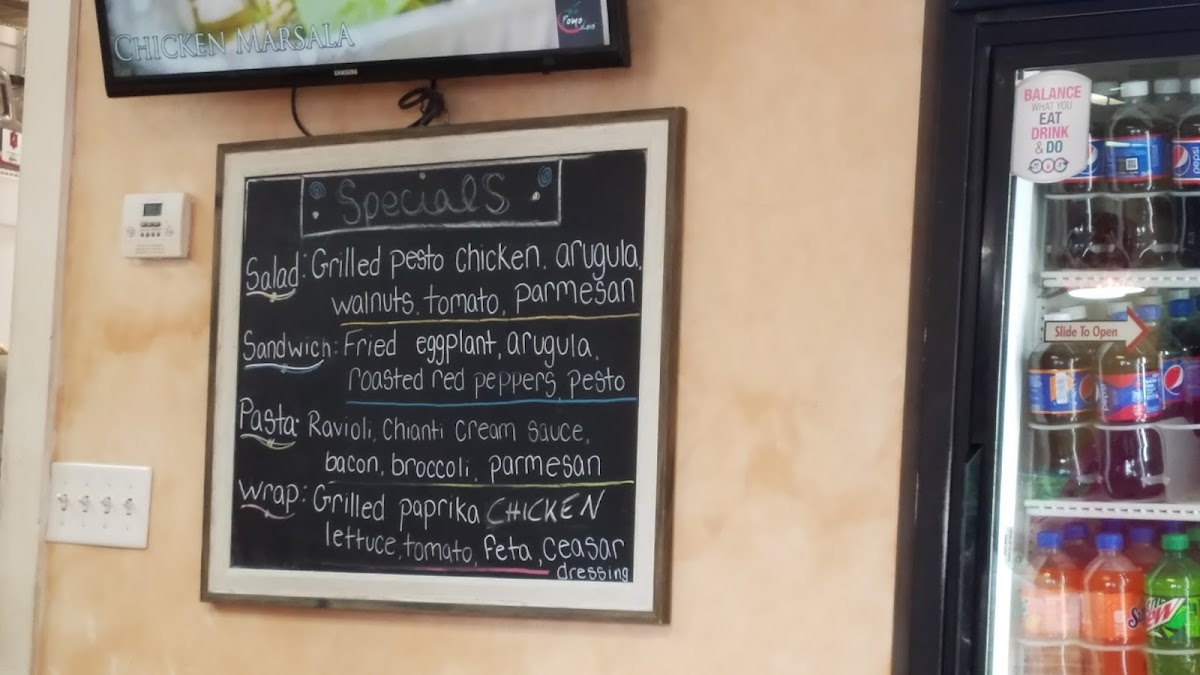 CHICKEN MARSALA
Pomo
SpecialS
Salad: Grilled pesto chicken. arugula,
walnuts, tomato, parmesan
Sandwich: Fried eggplant, arugula,
roasted red peppers, pesto
Pasta: Ravioli, Chianti cream sauce,
bacon, broccoli, parmesan
Wrap: Grilled paprika CHICKEN
lettuce, tomato, feta, ceasar
dressing
BALANCE
WHAT YOU
EAT
DRINK
& DO
pepsi
Slide To Open